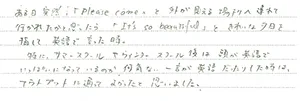 ある日突然、「Please come」と外が見える場所へ連れて
行かれたかと思ったら "It's so beautiful" ときれいな夕日を
指して英語で言った時。
特に、サマースクールやウィンタースクール後は頭が英語で
いっぱいになっているのか、何気ない一言が英語だったりした時は、
アウトプットに通ってよかったと思いました。